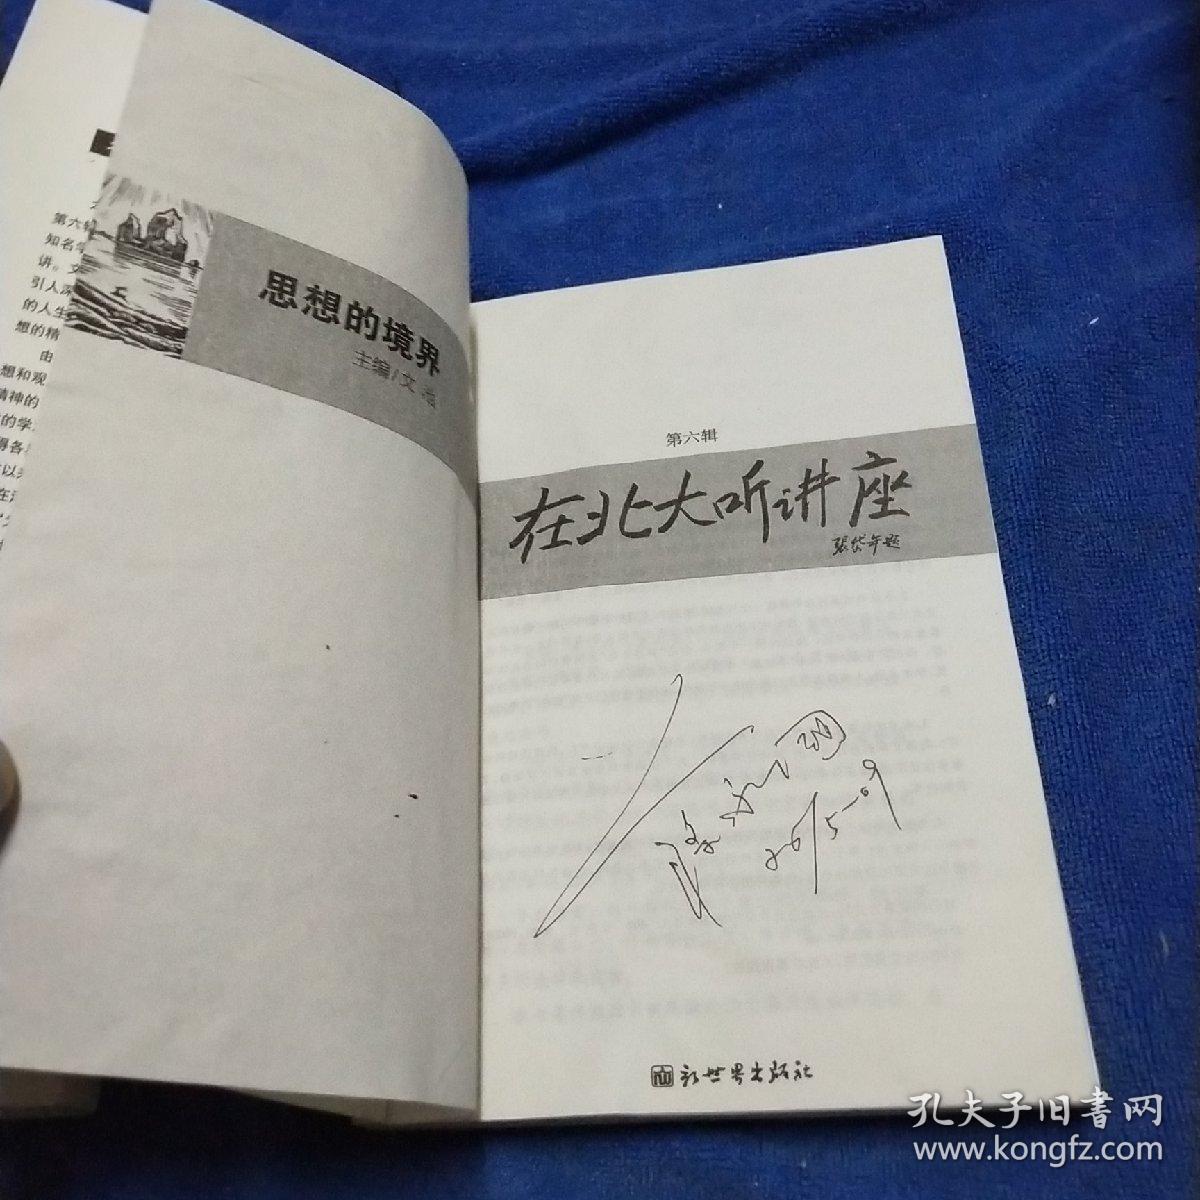 第六辑
知名学
讲。文
引人深
的人生
想的精
由
想和观
精神的
的学
得各
以
在
思想的境界
主编/文池
第六辑
在北大听讲座
张岱年题
新世界出版社
孔夫子旧书网
www.kongfz.com